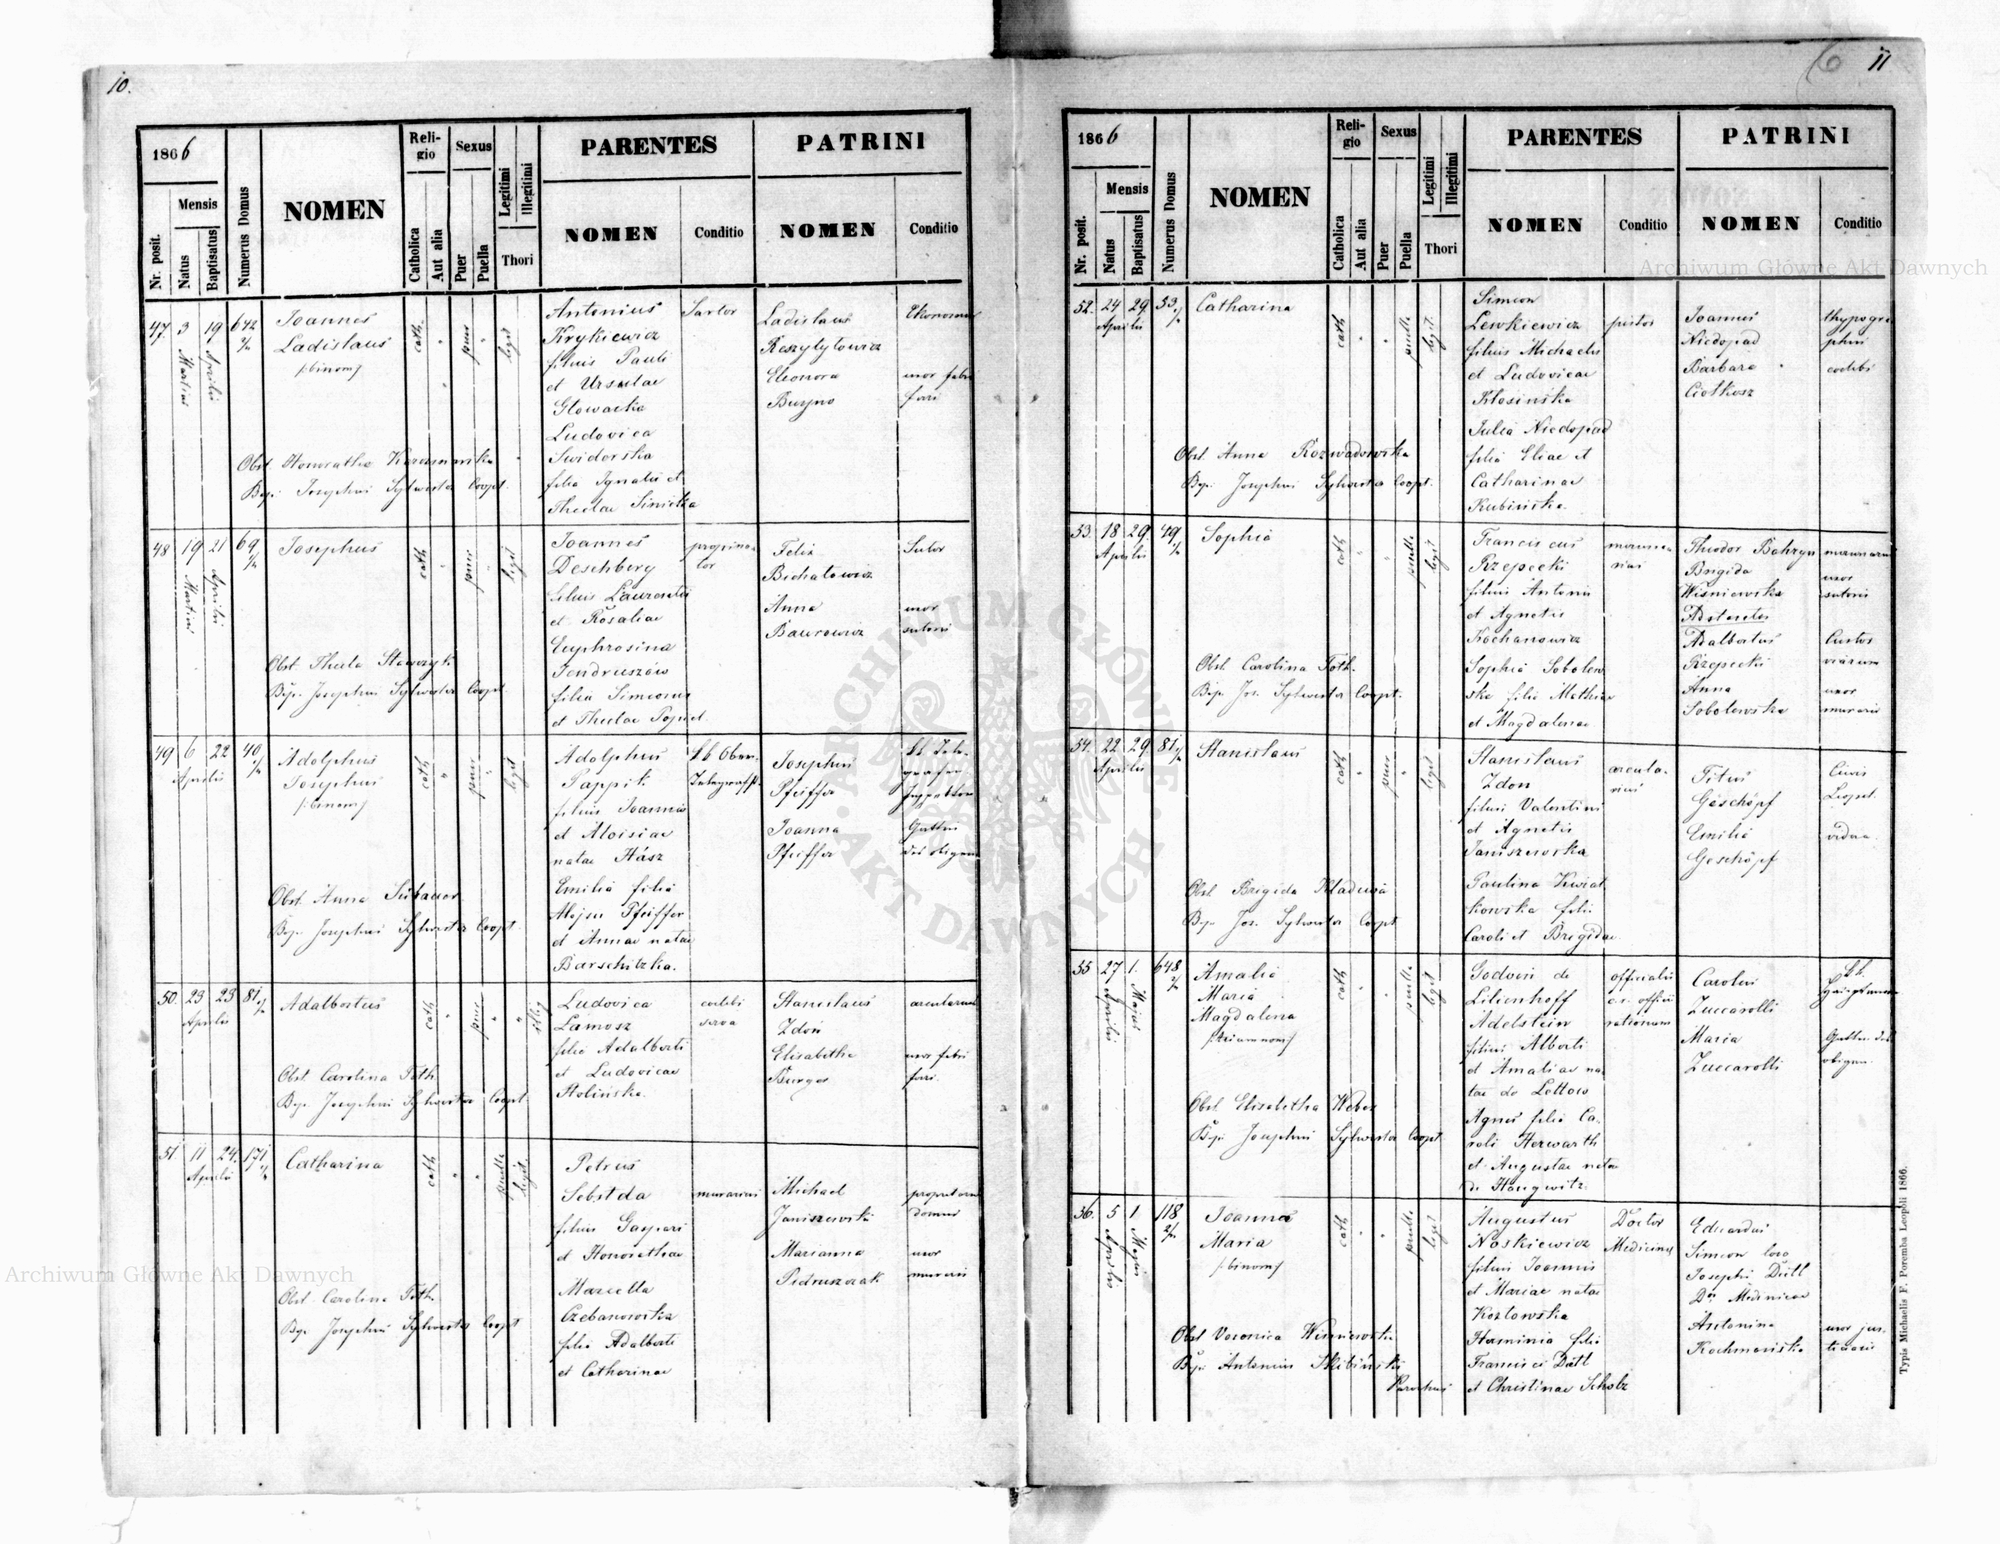 10.
1866
Nr. posit.
Mensis
Natus
Baptisatus
Numerus Domus
NOMEN
Religio
Catholica
Aut alia
Sexus
Puer
Puella
Legitimi
Illegitimi
Thori
PARENTES
NOMEN
Conditio
PATRINI
NOMEN
Conditio
47. 3 Martius 19 Aprilis 642
Joannes
Ladislaus
/:binom:/
cath. " puer " legit
Antonius
Krykiewicz
filius Pauli
et Ursulae
Głowacka
Ludovica
Swiderska
filia Ignatii et
Theclae Sinicka
Sartor
Ladislaus
Reszytyłowicz
Eleonora
Buzyno
Ekonomus
uxor fabri
ferri
Obst. Honoratha
Bap. Josephus Sylwester Coopt.
48 19 Martius 21 Aprilis 69
Josephus
cath " puer " legit
Joannes
Deschberg
filius Laurentii
et Rosaliae
Euphrosina
Jendruszów
filia Simeonis
et Theclae
propinator
Felix
Bichatowicz
Anna
Baurowicz
Sutor
uxor
sutoris
Obst. Thecla
Bap. Josephus Sylwester Coopt.
49 6 22 40
Aprilis
Adolphus
Josephus
/:binom:/
cath " puer " legit
Adolphus
Pappik
filius Joannis
et Aloisiae
natae Hász
Emilia filia
Alojsii Pfeiffer
et Annae natae
Barschitzka.
Josephus
Pfeiffer
Joanna
Pfeiffer
Gattin
des obigen
Obst. Anna
Bap. Josephus Sylwester Coopt.
50. 23 23 81
Aprilis
Adalbertus
cath " puer " " illeg
Ludovica
Lamosz
filia Adalberti
et Ludovicae
Holińska.
coelebs
serva
Stanislaus
Zdoń
Elisabetha
Burges
arcularius
uxor fabri
ferri.
Obst. Carolina Toth.
Bap. Josephus Sylwester Coopt
51 11 24. 171
Aprilis
Catharina
cath " " puella legit
Petrus
Sebstda
filius Gaspari
et Honorathae
Marcella
Czebanowska
filia Adalberti
et Catharinae
murarius
Michael
Janiszewski
Marianna
Pietruszczak
proprietarius
domus
uxor
murarii
Obst. Carolina Toth.
Bap. Josephus Sylwester Coopt
6 11
1866
Nr. posit.
Mensis
Natus
Baptisatus
Numerus Domus
NOMEN
Religio
Catholica
Aut alia
Sexus
Puer
Puella
Legitimi
Illegitimi
Thori
PARENTES
NOMEN
Conditio
PATRINI
NOMEN
Conditio
52. 24 29. 53
Aprilis
Catharina
cath " puella legit.
Simeon
Lewkiewicz
filius Michaelis
et Ludovicae
Kłosińska
Julia Niedopad
filia Eliae et
Catharinae
Kubińska
pistor
Joannes
Niedopad
Barbara
Ciołkosz
thypographus
coelebs
Obst. Anna Rozwadowska
Bap. Josephus Sylwester Coopt.
53. 18 29. 49
Aprilis
Sophia
cath " " puella legit
Franciscus
Rzepecki
filius Antonii
et Agnetis
Kochanowicz
Sophia Sobolewska
filia Mathiae
et Magdalenae
Theodor
Brigida
Wiśniewska
Adstantes
Adalbertus
Rzepecki
Anna
Sobolewska
uxor
sutoris
Custos
viarum
uxor
murarii
Obst. Carolina Tóth.
Bap. Jos. Sylwester Coopt.
54. 22 29. 81
Aprilis
Stanislaus
cath " puer " legit
Stanislaus
Zdon
filius Valentini
et Agnetis
Janiszewska
Paulina Kwiatkowska
filia
Caroli et Brigidae
arcularius
Titus
Geschöpf
Emilia
Geschöpf
Civis
Leopol.
vidua.
Obst. Brigida
Bap. Jos. Sylwester Coopt
55 27 Aprilis 1. Majus 648
Amalia
Maria
Magdalena
/:trium nom:/
cath " " puella legit
Godwin de
Lilienhoff
Adelstein
filius Alberti
et Amaliae natae
de Lettow
Agnes filia Caroli
Herwarth
et Augustae nata
de Haugwitz.
officialis
c. r. officii
rationum
Carolus
Zuccarolli
Maria
Zuccarolli
k.k.
Hauptmann
Gattin des
obigen.
Obst. Elisabetha Weber
Bap. Josephus Sylwester Coopt
56. 5 Aprilis 1 Majus 118
Joanna
Maria
/:binom:/
cath " " puella legit
Augustus
Noskiewicz
filius Joannis
et Mariae natae
Kozłowska
Herminia filia
Francisci Dütl
et Christinae Scholz
Doctor
Medicinae
Eduardus
Simeon loco
Josephi Dütl
Dr. Medicinae
Antonina
Kochmańska
uxor justiciarii
Obst. Veronica Wiśniewska
Bap. Antonius Skibiński
Parochus
Typis Michaelis F. Poremba Leopoli 1866.
Archiwum Główne Akt Dawnych
Archiwum Główne Akt Dawnych
ARCHIWUM GŁÓWNE
AKT DAWNYCH